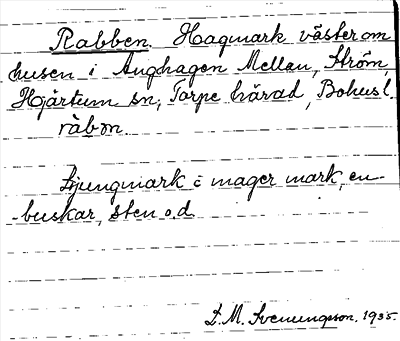 Rabben. Hagmark väster om
husen i Änghagen Mellan, Ström,
Hjärtum sn, Torpe härad, Bohusl.
räbm.
Ljungmark o mager mark, en-
-buskar, sten o.d.
D.M. Svenungsson. 1935.